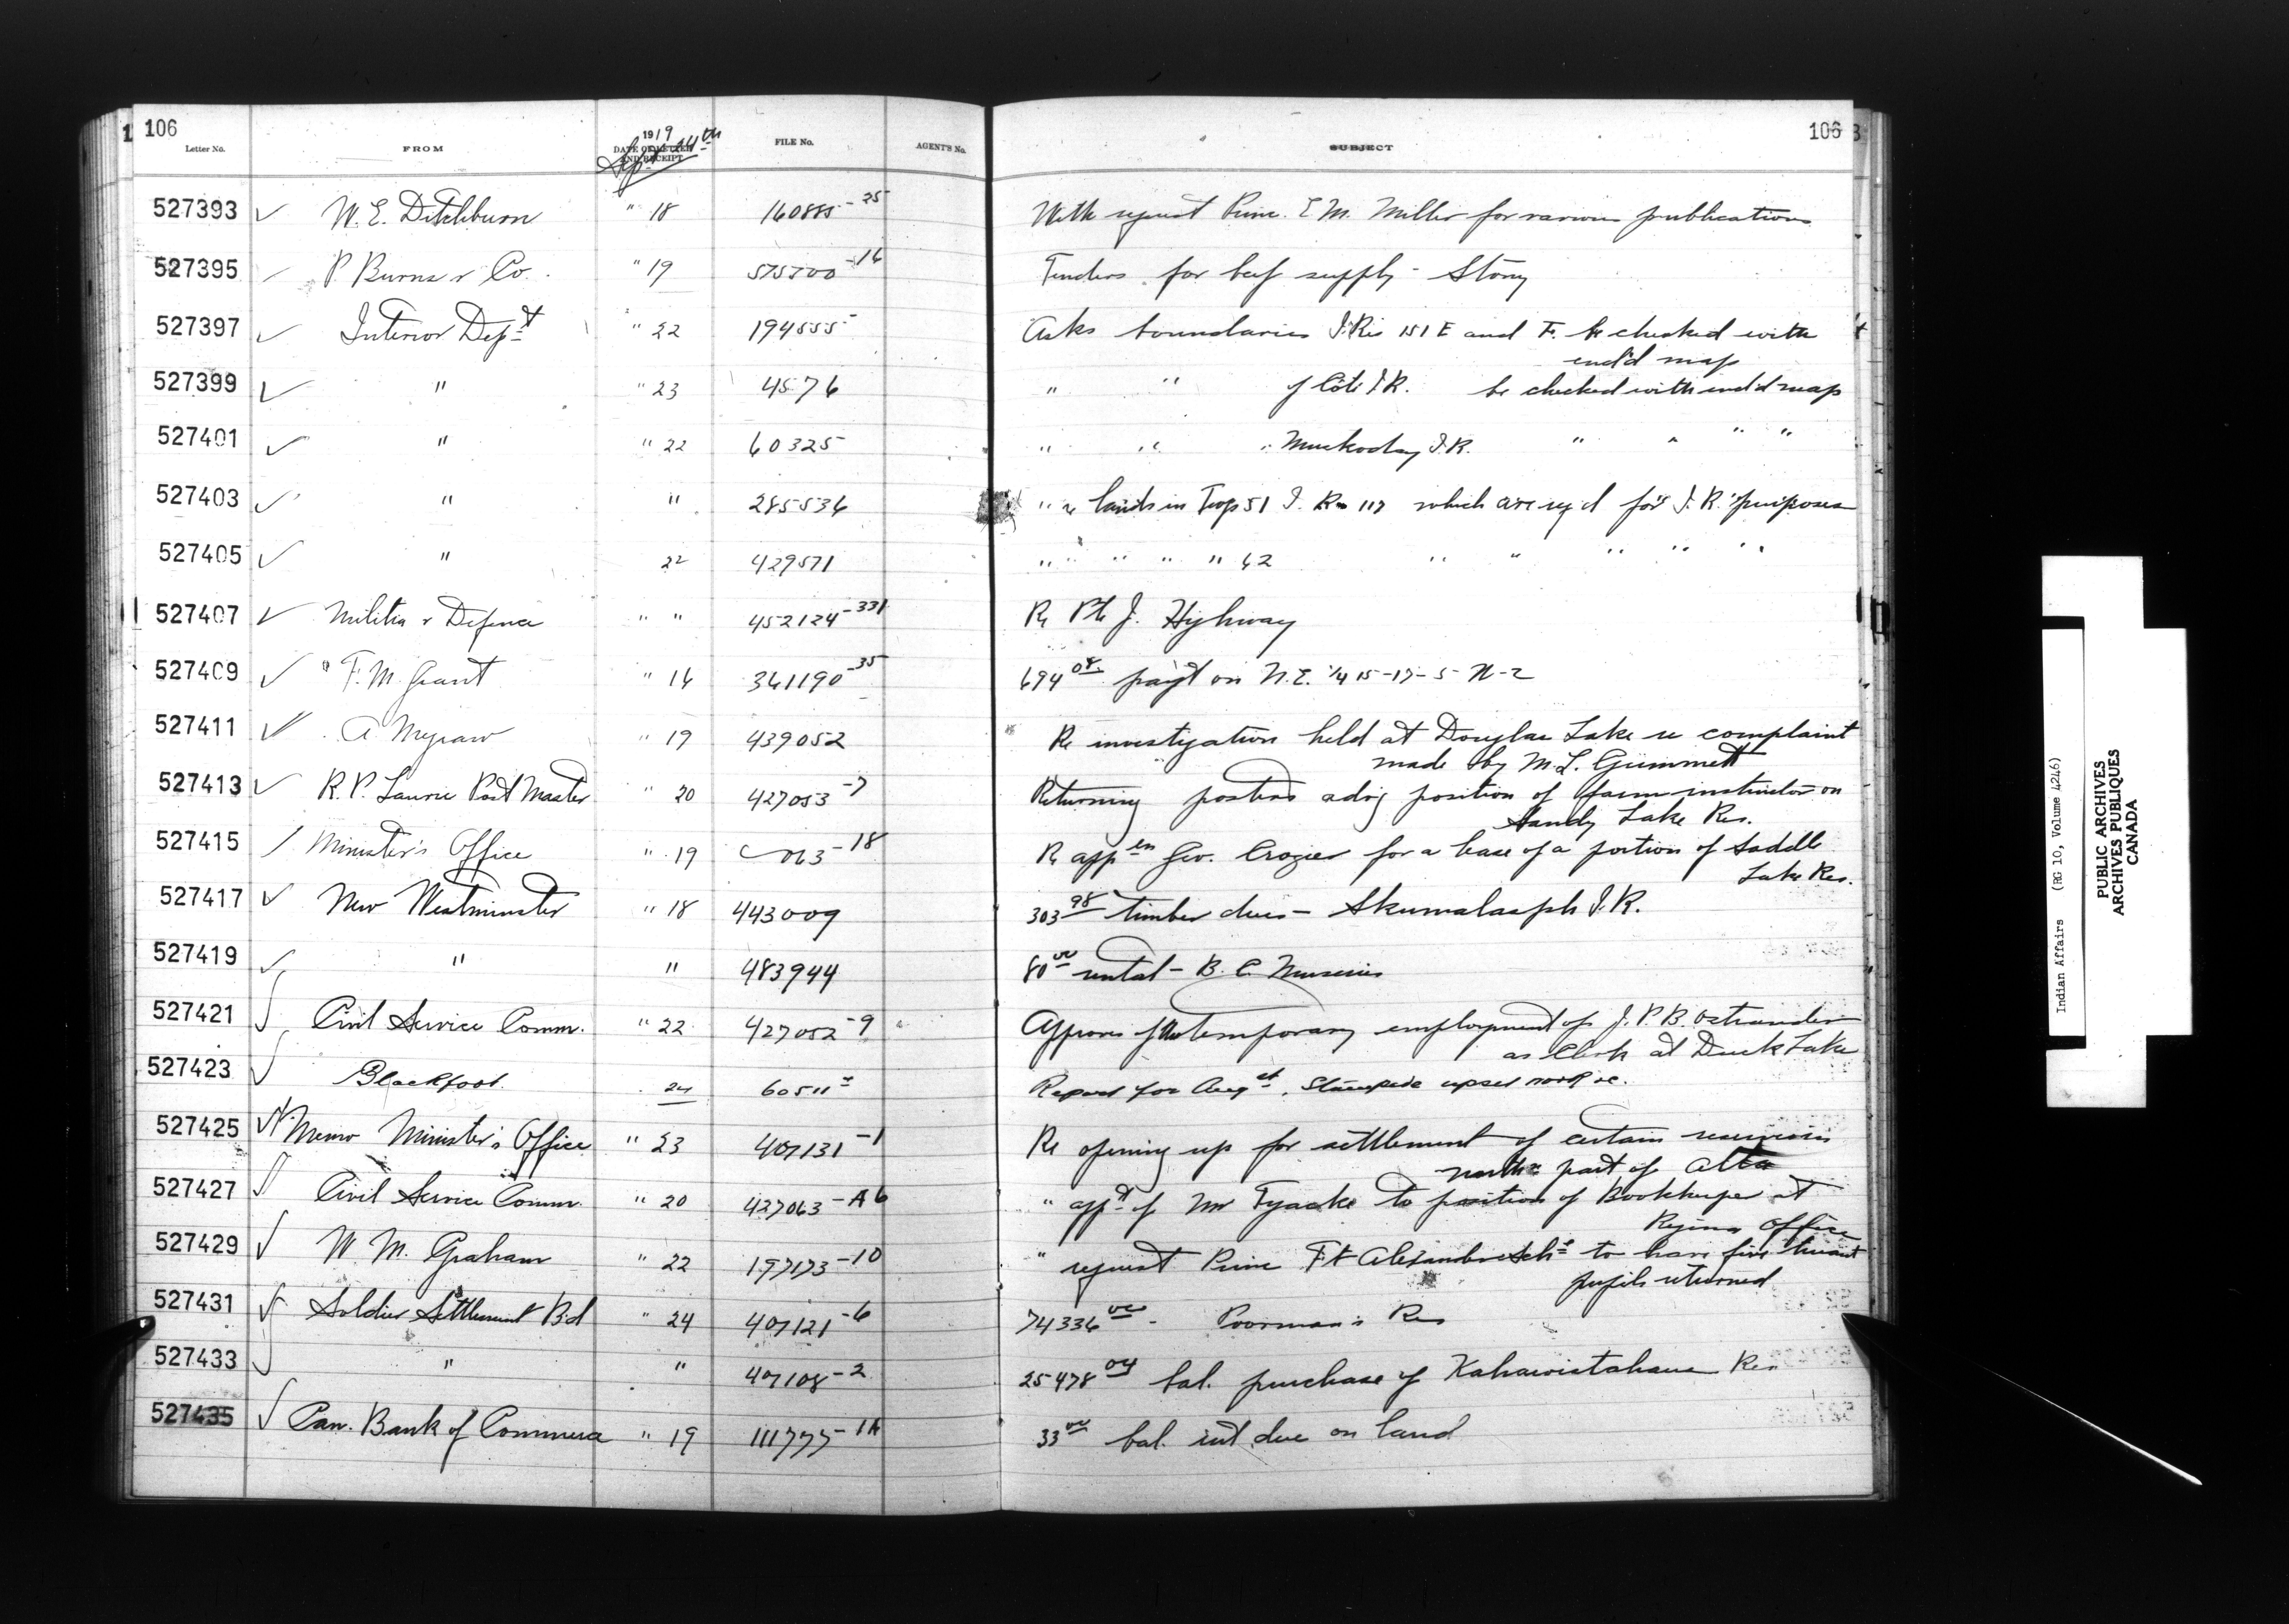 106
106
1919
Sept 24th
Letter No. FROM DATE OF LETTER AND RECEIPT FILE No. AGENT'S No. SUBJECT
527393 W. E. Ditchburn " 18 160885-25 With request Princ. E. M. Miller for various publications
527395 P. Burns & Co. " 19 575700-16 Tenders for beef supply - Stony
527397 Interior Dept " 22 194555 Asks boundaries I.Res 151 E and F. be checked with
encl'd map
527399 " " 23 4576 " " of Côté I.R. be checked with encl'd map
527401 " " 22 60325 " " " Muskoday I.R. " " " "
527403 " " 285536 " re lands in Twp 51 I. Res 117 which are reqd for I.R. purposes
527405 " 22 429571 " " " " " 62 " " " " "
527407 Militia & Defence " " 452124-331 Re Pte J. Highway
527409 F. M. Grant " 16 361190-35 694 08 pay't on N.E. 1/4 15-17-5-W-2
527411 A Megraw " 19 439052 Re investigation held at Douglas Lake re complaint
made by M. L. Grimmett
527413 R. P. Laurie Post Master " 20 427053-7 Returning posters advg position of farm instructor on
Sandy Lake Res.
527415 Minister's Office " 19 063-18 Re appln Geo. Crozier for a lease of a portion of Saddle
Lake Res.
527417 New Westminster " 18 443009 303 98 timber dues - Skumalasph I.R.
527419 " " 483944 80 00 rental - B. C. Nurseries
527421 Civil Service Comm. " 22 427052-9 Approves of the temporary employment of J. P. B. Ostrander
as Clerk at Duck Lake
527423 Blackfoot 24 60511 Report for Augst. Stampede upset work &c.
527425 Memo Minister's Office " 23 407131-1 Re opening up for settlement of certain reserves
northn part of Alta
527427 Civil Service Comm. " 20 427063-A6 " appt of Mr Tyacke to position of Bookkeeper at
Regina Office
527429 W. M. Graham " 22 197173-10 " request Princ Ft Alexander Schl to have five truant
pupils returned
527431 Soldier Settlement Bd " 24 407121-6 74336 00 - Poorman's Res
527433 " " 407108-2 25478 04 bal. purchase of Kahawistahaws Res
527435 Can. Bank of Commerce " 19 111777-1A 33 00 bal. int due on land
Indian Affairs (RG 10, Volume 4246)
PUBLIC ARCHIVES
ARCHIVES PUBLIQUES
CANADA